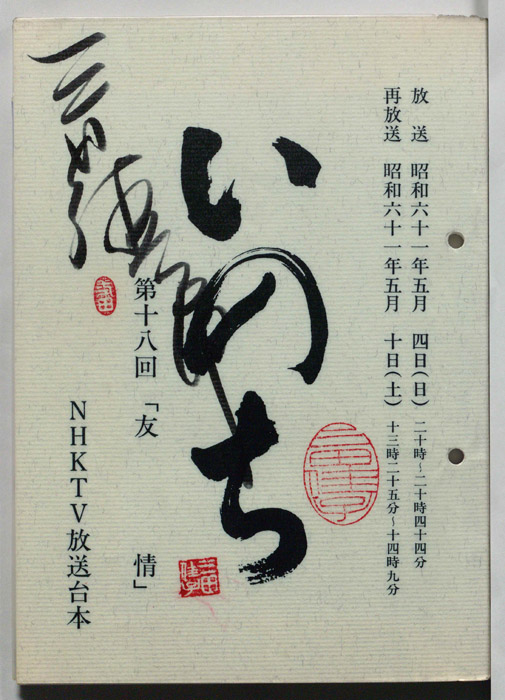 放送 昭和六十一年五月 四日(日) 二十時~二十時四十四分
再放送 昭和六十一年五月 十日(土) 十三時二十五分~十四時九分
いのち
第十八回「友 情」
NHKTV放送台本